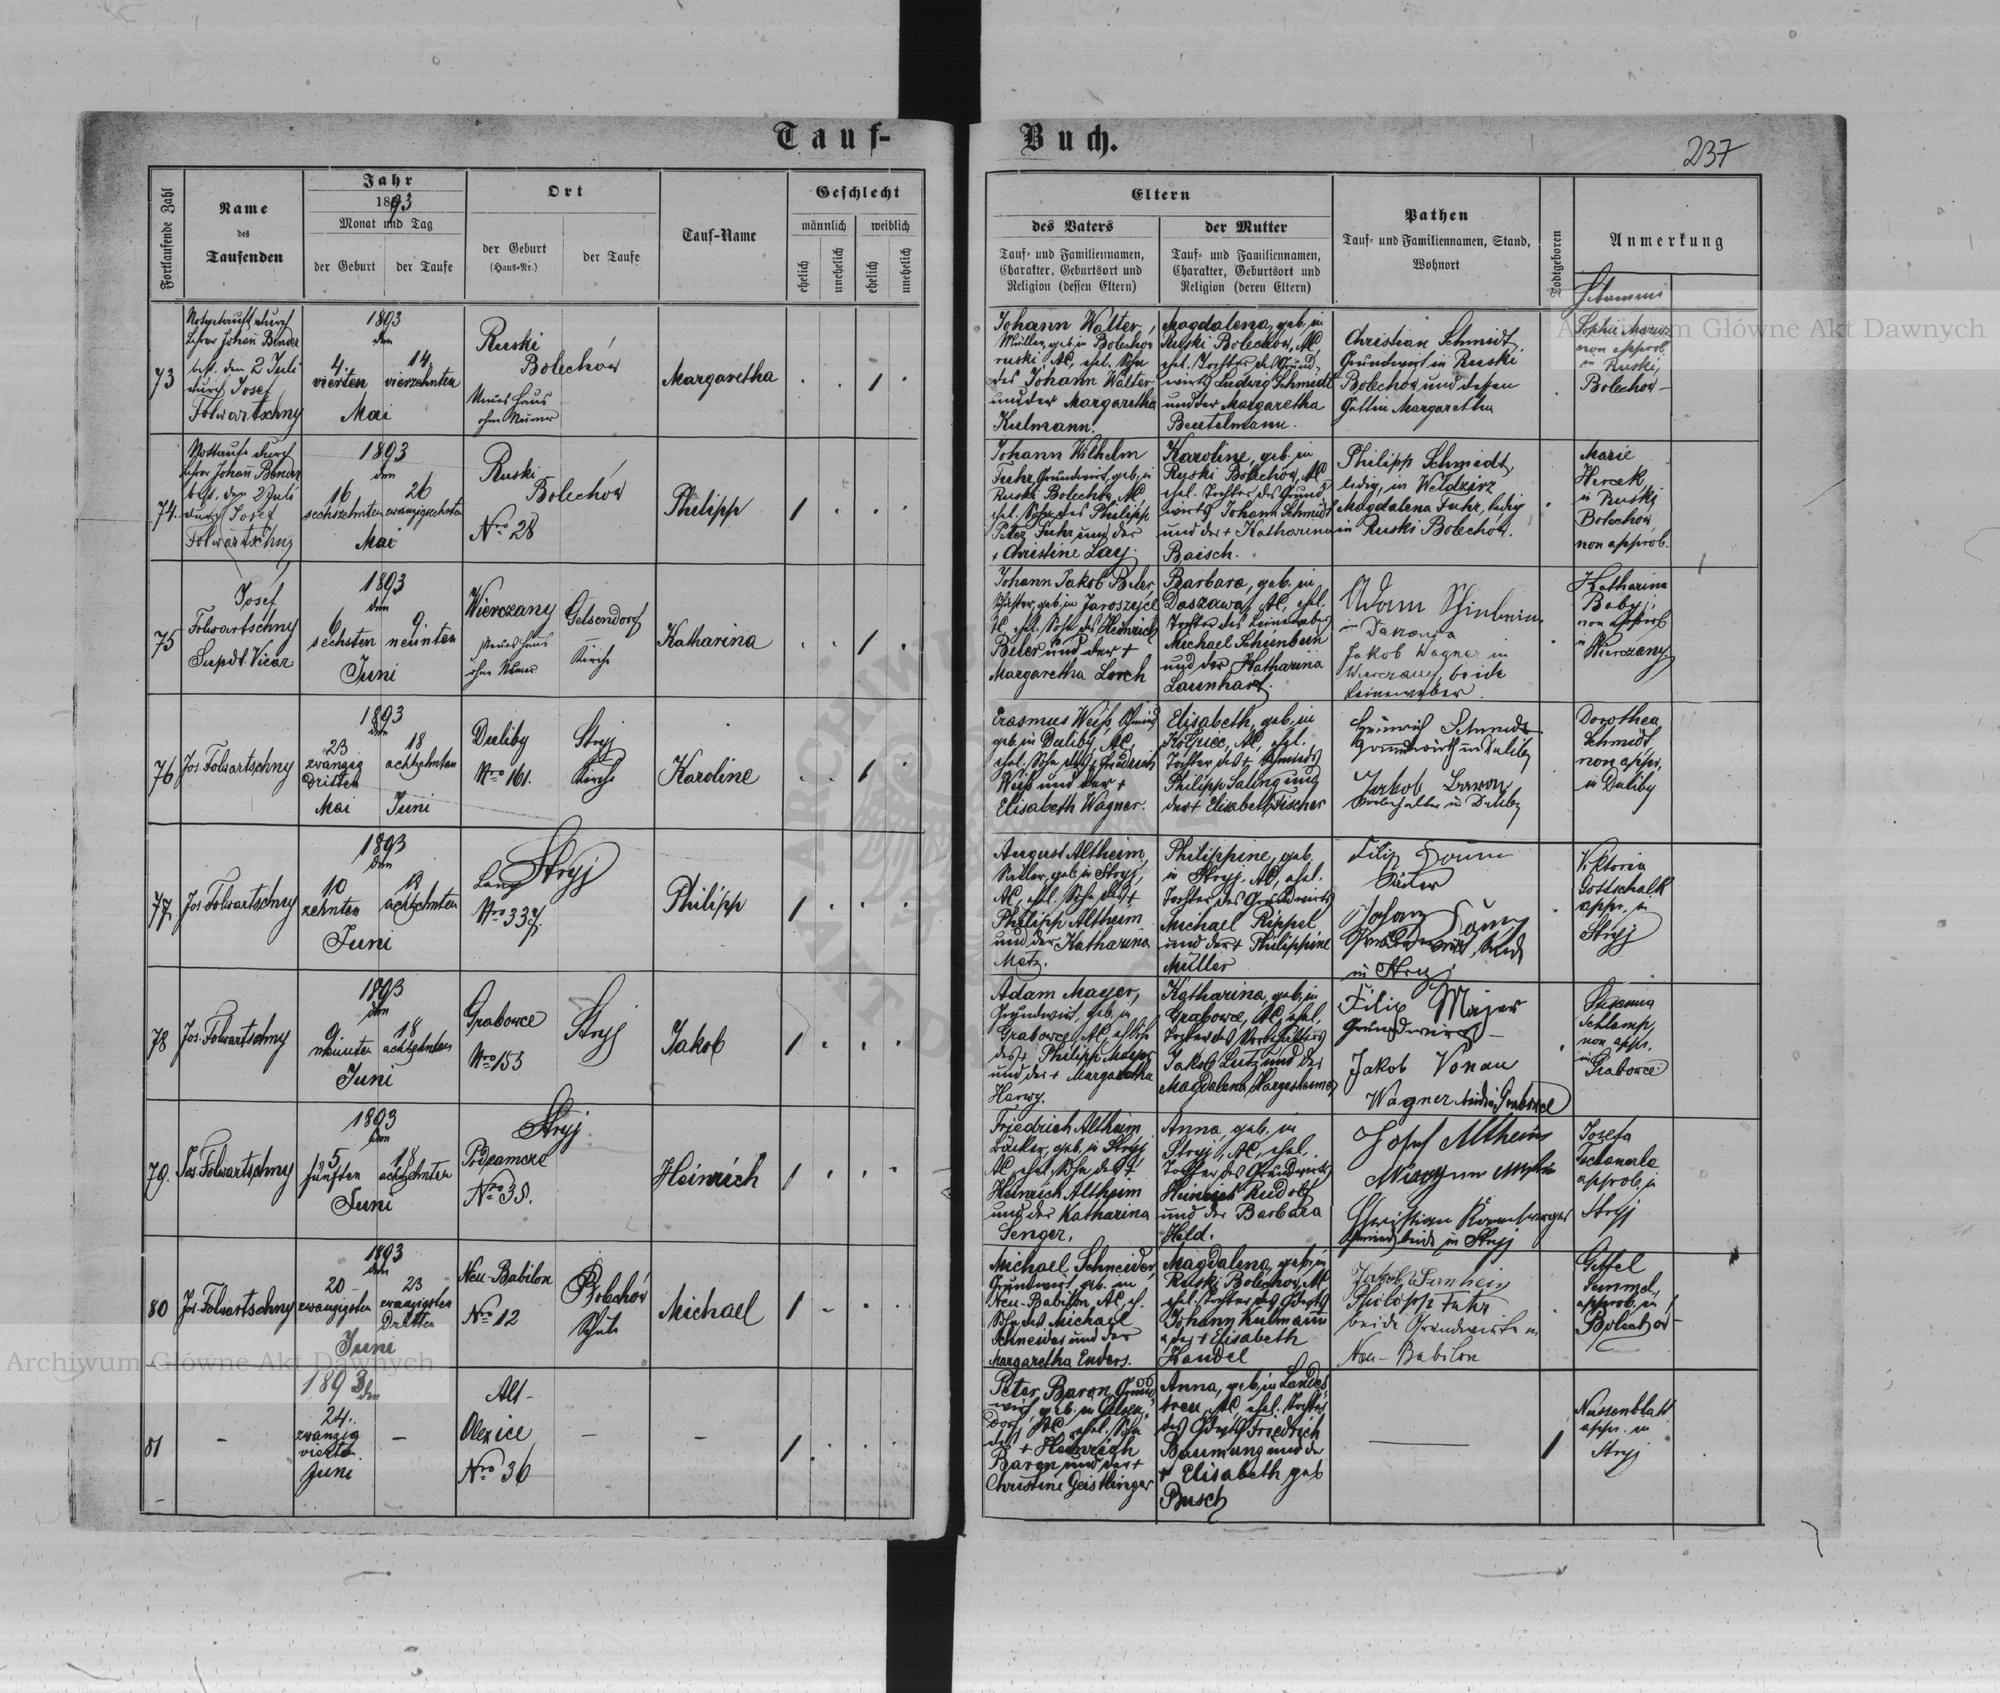 Tauf-
Buch.
237
Fortlaufende Zahl
Name
des
Taufenden
Jahr
1893
Monat und Tag
der Geburt
der Taufe
Ort
der Geburt
(Haus-Nr.)
der Taufe
Tauf-Name
Geschlecht
männlich
weiblich
ehelich
unehelich
ehelich
unehelich
Eltern
des Vaters
Tauf- und Familiennamen,
Charakter, Geburtsort und
Religion (dessen Eltern)
der Mutter
Tauf- und Familiennamen,
Charakter, Geburtsort und
Religion (deren Eltern)
Pathen
Tauf- und Familiennamen, Stand,
Wohnort
Todtgeboren
Anmerkung
Archiwum Główne Akt Dawnych
73
Notgetauft durch
Lehrer Johann Bender
best. den 2 Juli
durch Josef
Folwartschny
1893
den
4.
vierten
14.
vierzehnten
Mai
Ruski
Bolechów
Neues Haus
ohne Numer
Margaretha
Johann Walter,
Müller, geb. in Bolechów
ruski, AC, ehel. Sohn
des Johann Walter
und der Margaretha
Kulmann.
Magdalena, geb. in
Ruski Bolechów, AC,
ehel. Tochter des Grund-
wirts Ludwig Schmidt
und der Margaretha
Beutelmann.
Christian Schmidt,
Grundwirt in Ruski
Bolechów und dessen
Gattin Margaretha
non approb.
in Ruski
Bolechow
74.
Nottaufe durch
Lehrer Johann Bender
best. den 2 Juli
durch Josef
Folwartschny
1893
den
16
sechszehnten
26
zwanzigsechsten
Mai
Ruski
Bolechów
Nro 28
Philipp
Johann Wilhelm
Fuhr, Grundwirt, geb. in
Ruski Bolechów, AC,
ehel. Sohn des Philipp
Peter Fuhr und der
+ Christine Lay.
Karoline, geb. in
Ruski Bolechów, AC
ehel. Tochter des Grund-
wirts Johann Schmidt
und der + Katharina
Baisch.
Philipp Schmidt,
ledig, in Weldzirz
Magdalena Fuhr, ledig
in Ruski Bolechów.
Marie
Hercek
in Ruski
Bolechów,
non approb.
75
Josef
Folwartschny
Supdt. Vicar
1893
den
6
sechsten
9.
neunten
Juni
Wierczany
Neues Haus
ohne Numer
Gelsendorf
Kirche
Katharina
Johann Jakob Beler,
geb. in
ehel. Sohn des Heinrich
Beler und der +
Margaretha Lorch
Barbara, geb. in
Daszawa, AC, ehel.
Tochter des Leinewebers
Michael Schienbein
und der Katharina
Launhart.
Adam
Jakob Wagner in
Wierczany, beide
Leineweber.
Katharina
Baby,
non approb
in
Wierczany
76
Jos. Folwartschny
1893
den
23
zwanzig
dritten
Mai
18
achtzehnten
Juni
Duliby
Nro 161.
Stryj
Kirche
Karoline
Erasmus Weiß, Schmied
geb. in Duliby, AC,
ehel. Sohn des + Friedrich
Weiß und der +
Elisabeth Wagner.
Elisabeth, geb. in
AC, ehel.
Tochter des + Schmieds
Philipp Saling und
der + Elisabeth Fischer
Heinrich Schmidt
Grundwirth in Duliby
Jakob Baron
in Duliby
Dorothea
Schmidt,
non appr.
in Duliby
77
Jos. Folwartschny
1893
den
10
zehnten
18
achtzehnten
Juni
Stryj
Lany
Nro 337.
Philipp
August Altheim,
Sattler, geb. in Stryj,
AC, ehel. Sohn des +
Philipp Altheim
und der Katharina
Metz.
Philippine, geb.
in Stryj, AC, ehel.
Tochter des Grundwirts
Michael Rippel
und der + Philippine
Müller
Filip
in Stryj
Viktoria
Gottschalk
appr. in
Stryj
78
Jos. Folwartschny
1893
den
9
neunten
18
achtzehnten
Juni
Grabowce
Nro 153
Stryj
Jakob
Adam Mayer,
Grundwirt, geb. in
Grabowce, AC, ehl. Sohn
des + Philipp Mayer
und der + Margaretha
Katharina, geb. in
Grabowce, AC, ehel.
Tochter des
Jakob Lutz und der
Magdalena
Filip Majer
Grundwirt
Jakob Vonau
Wagner beide in Grabowce
Susanna
Schlamp,
non appr.
in
Grabowce
79.
Jos. Folwartschny
1893
den
5
fünften
18
achtzehnten
Juni
Stryj
Podzamcze
Nro 35.
Heinrich
Friedrich Altheim
Bäcker, geb. in Stryj
AC, ehel. Sohn des +
Heinrich Altheim
und der Katharina
Senger.
Anna, geb. in
Stryj, AC, ehel.
Tochter des Grundwirts
Heinrich Rudolf
und der Barbara
Held.
Josef Altheim
Christian
beide in Stryj
Josefa
approb. in
Stryj
80
Jos. Folwartschny
1893
den
20
zwanzigsten
23
zwanzigsten
Dritten
Juni
Neu-Babilon
Nro 12
Bolechów
Schule
Michael
Michael Schneider,
Grundwirt geb. in
Neu-Babilon, AC, eh.
Sohn des Michael
Schneider und der
Margaretha Enders.
Magdalena, geb. in
Ruski Bolechow, AC
ehel. Tochter des Gdwirts
Johann Kulmann
u. der + Elisabeth
Kandel
Philipp Fuhr
beide Grundwirte in
Neu-Babilon
Gittel
Semmel,
approb. in
Bolechow
81
-
1893
den
24.
zwanzig
vierten
Juni
-
Alt-
Olexice
Nro 36
-
-
Peter Baron, Grund-
wirt, geb. in Gelsen-
dorf, AC, ehel. Sohn
des + Heinrich
Baron und der +
Christine Geistlinger
Anna, geb. in Landes-
treu, AC, ehel. Tochter
des Gdwirts Friedrich
Baumung und der
+ Elisabeth geb
Busch
Nussenblatt
appr. in
Stryj
Archiwum Główne Akt Dawnych